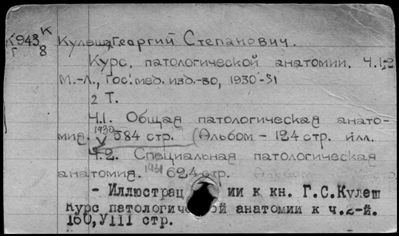 К943 К Кулеша, Георгий Степанович.
Г 8
Курс. патологической анатомии. Ч.1,2
М.-Л., Гос. мед. изд-во, 1930-31
2 Т.
Ч.1. Общая патологическая анато-
мия. 1930 584 стр. (Альбом - 124 стр. илл.
Ч.2. Специальная патологическая
анатомия. 1931 624 стр.
- Иллюстрац ии к кн. Г.С.Кулеш
Курс патологической анатомии к ч.2-й.
160,УIII стр.